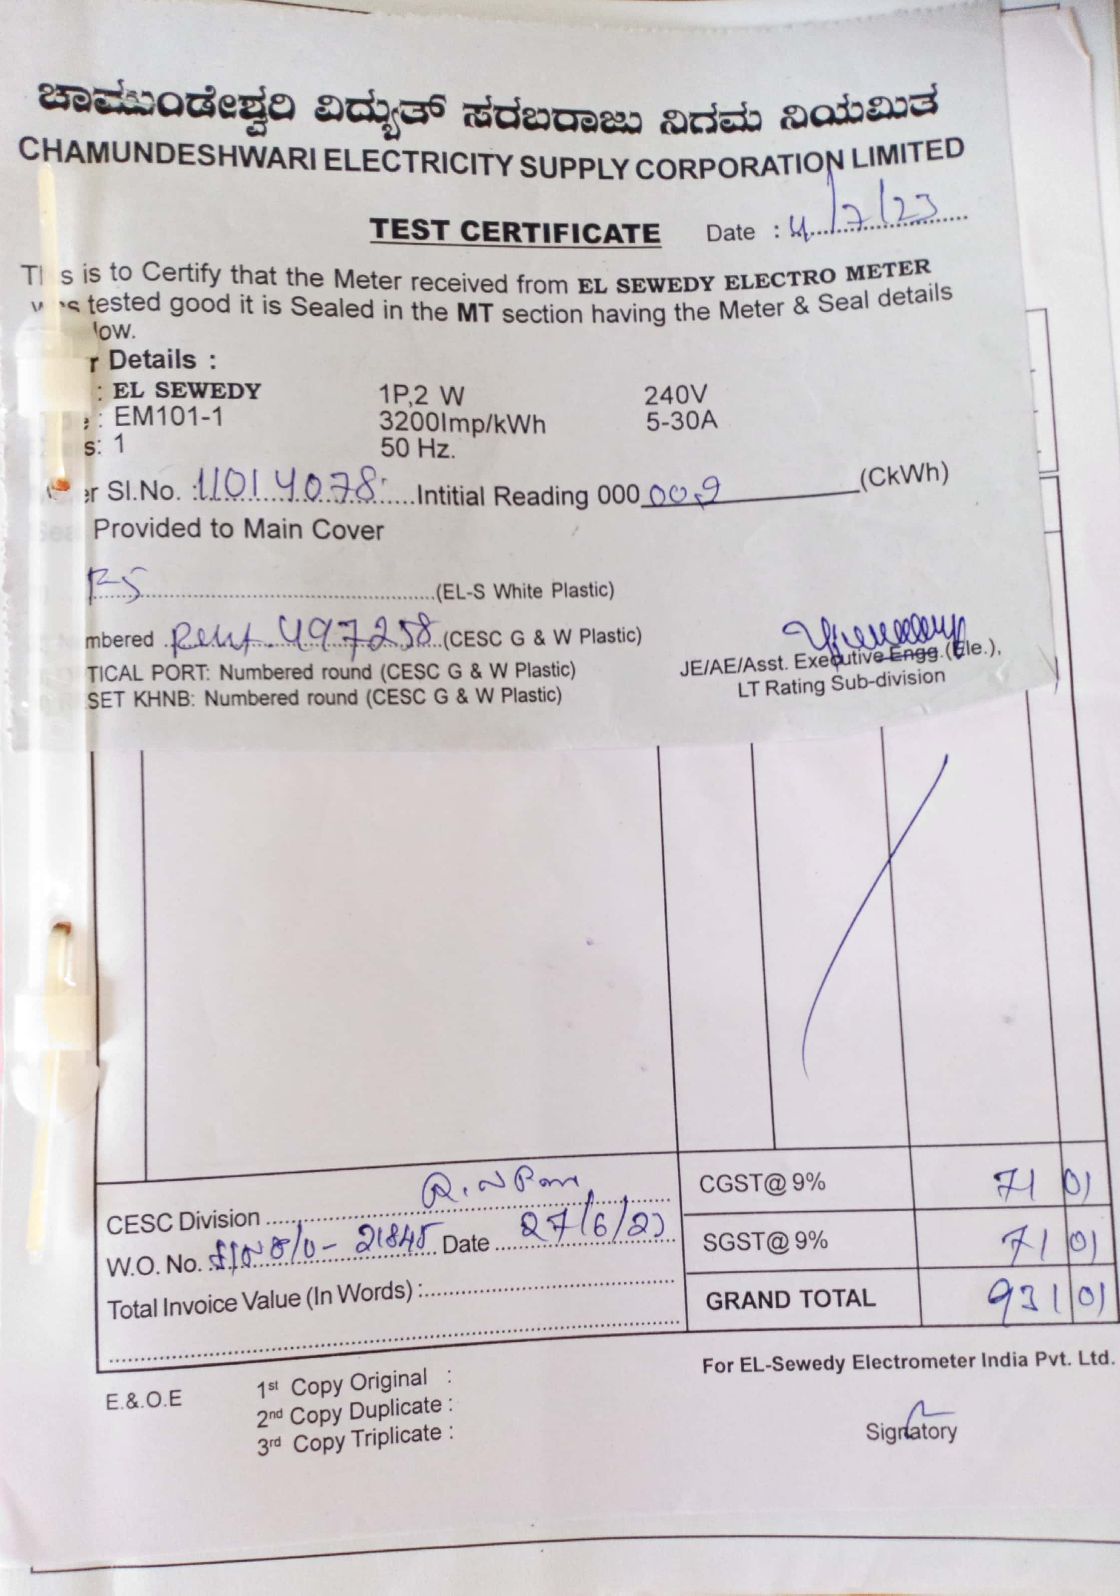 ಚಾಮುಂಡೇಶ್ವರಿ ವಿದ್ಯುತ್ ಸರಬರಾಜು ನಿಗಮ ನಿಯಮಿತ
CHAMUNDESHWARI ELECTRICITY SUPPLY CORPORATION LIMITED
TEST CERTIFICATE Date : 4/7/23
is to Certify that the Meter received from EL SEWEDY ELECTRO METER
tested good it is Sealed in the MT section having the Meter & Seal details
low.
r Details :
: EL SEWEDY 1P,2 W 240V
: EM101-1 3200Imp/kWh 5-30A
s: 1 50 Hz.
er SI.No. :11014078 Intitial Reading 000 00.9 (CkWh)
Provided to Main Cover
(EL-S White Plastic)
mbered 497258 (CESC G & W Plastic)
TICAL PORT: Numbered round (CESC G & W Plastic)
SET KHNB: Numbered round (CESC G & W Plastic)
JE/AE/Asst. Executive Engg.(Ele.),
LT Rating Sub-division
CESC Division
CGST@ 9% 71 01
W.O. No. 21845 Date 27/6/23
SGST@ 9% 71 01
Total Invoice Value (In Words) :
GRAND TOTAL 931 01
For EL-Sewedy Electrometer India Pvt. Ltd.
E.&.O.E
1st Copy Original :
2nd Copy Duplicate :
3rd Copy Triplicate :
Signatory